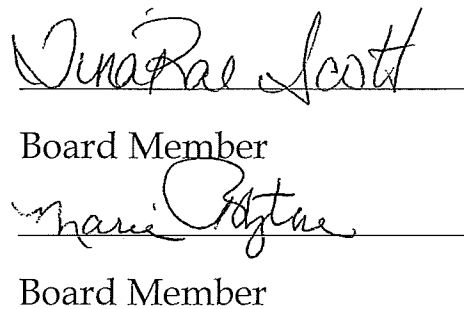 TinaRae Scott
Board Member
Marie
Board Member